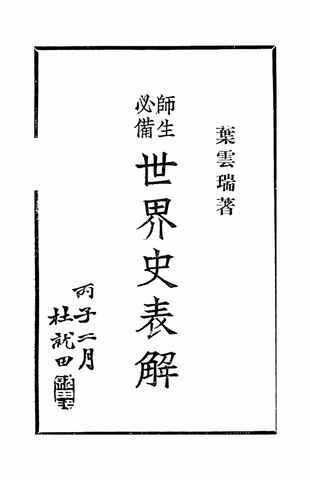 葉雲瑞著
師生
必備
世界史表解
丙子二月
杜就田